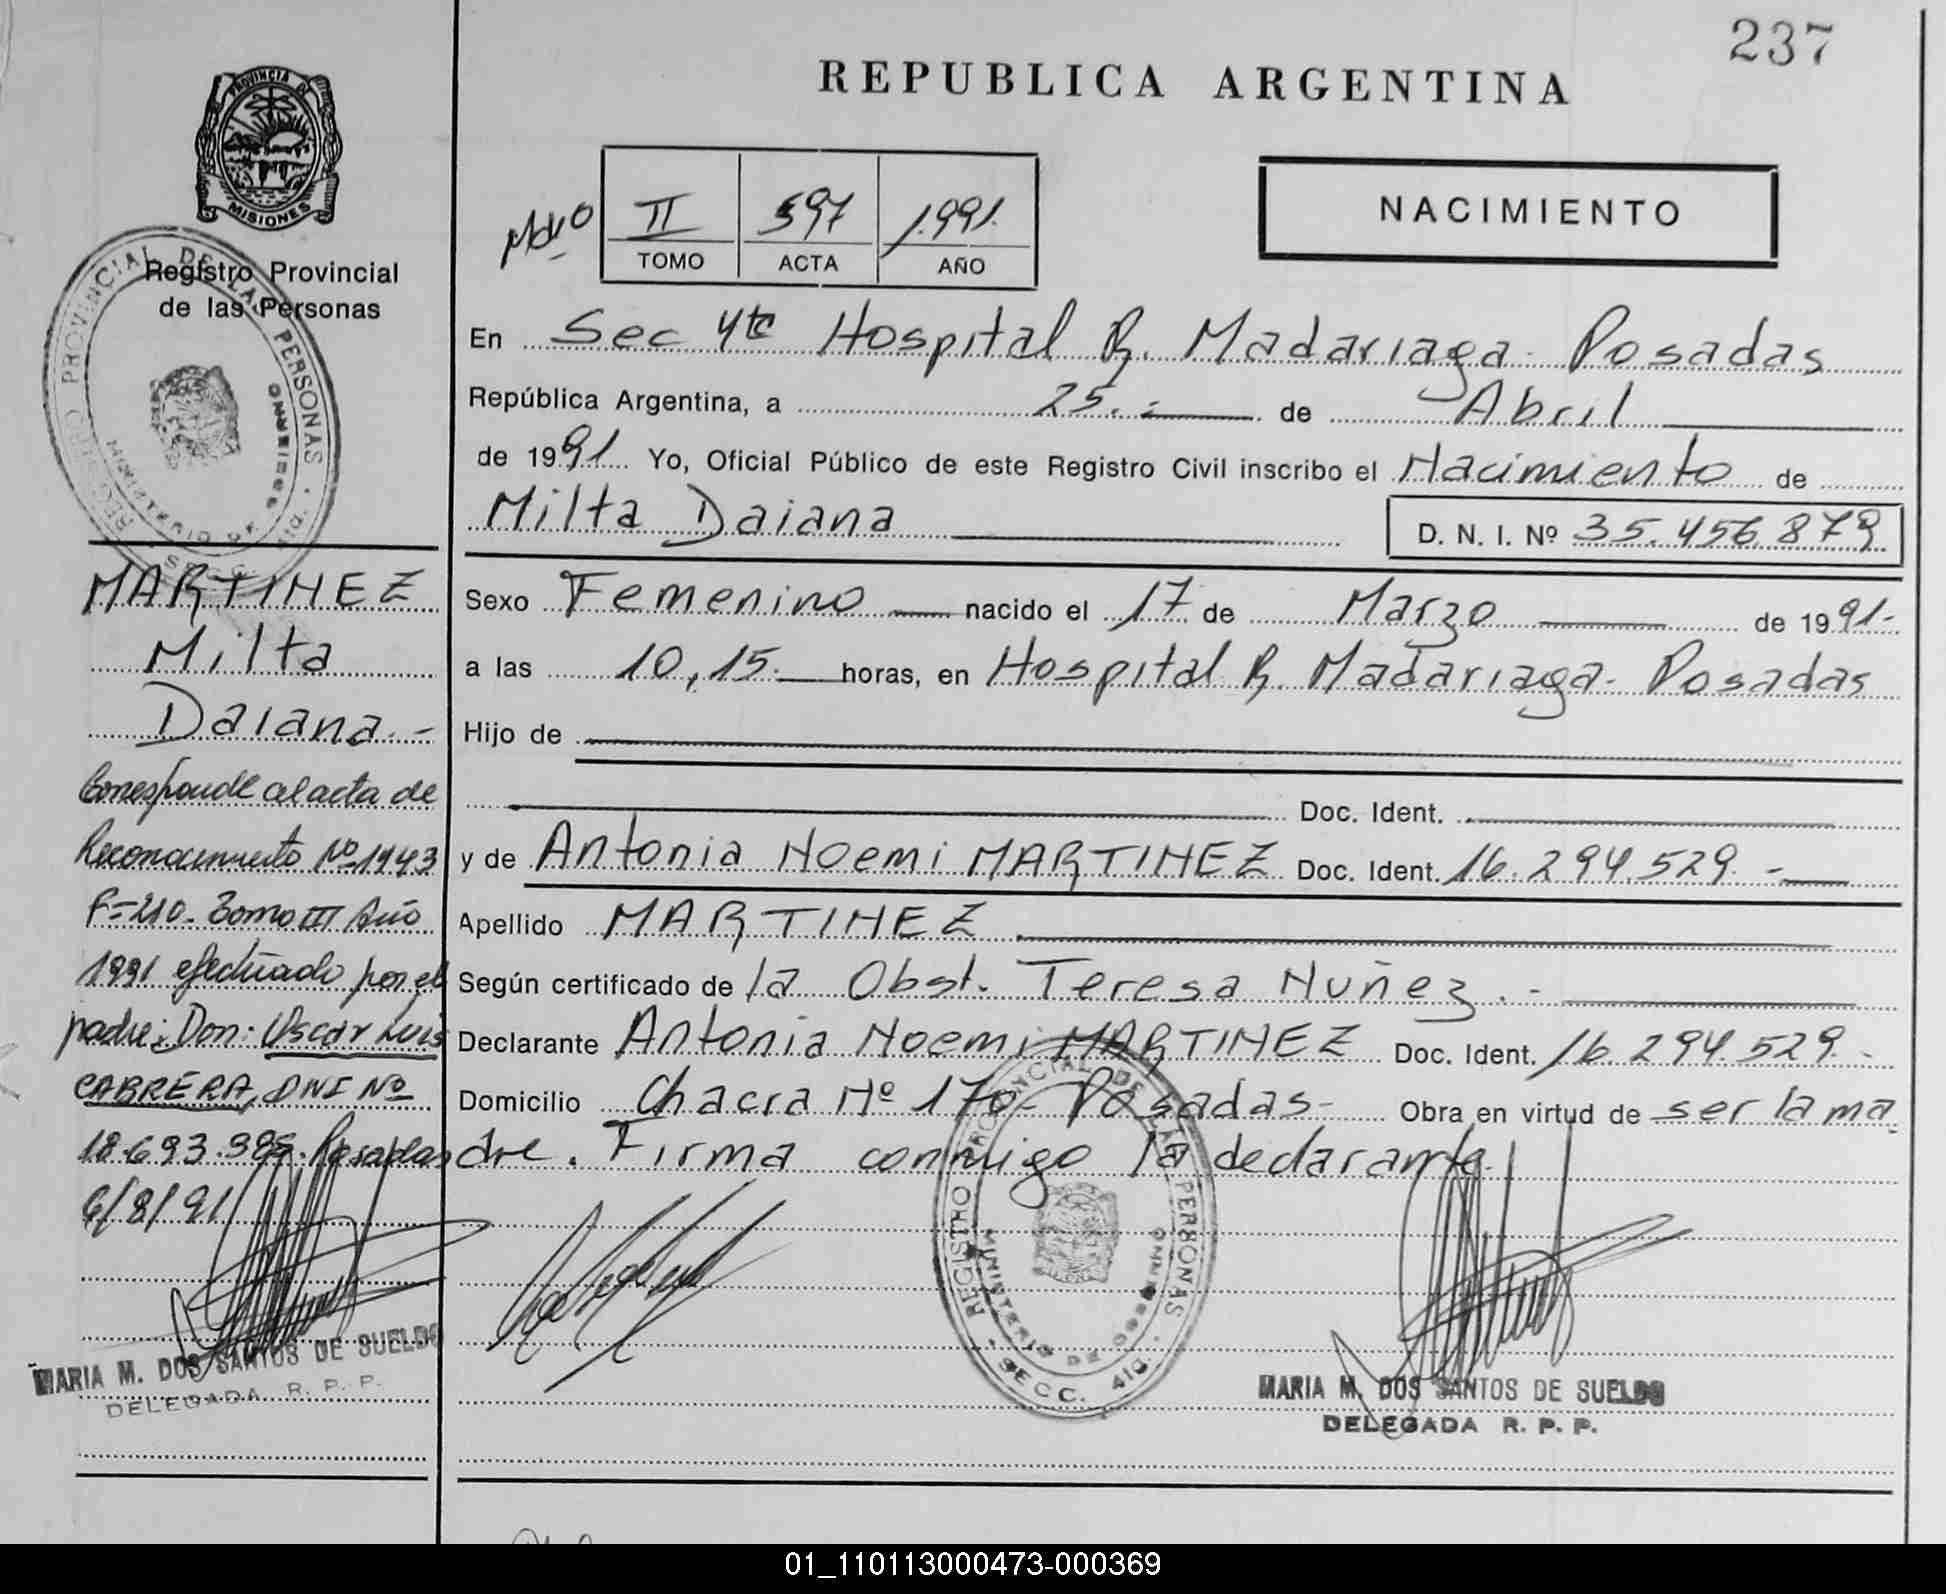 237
REPUBLICA ARGENTINA
PROVINCIA DE
MISIONES
Registro Provincial
de las Personas
II 597 1.991.
TOMO ACTA AÑO
NACIMIENTO
En Sec 4ta Hospital R. Madariaga - Posadas
República Argentina, a 25.- de Abril
de 1991 Yo, Oficial Público de este Registro Civil inscribo el Nacimiento de
Milta Daiana
D. N. I. Nº 35.456.879
Sexo Femenino nacido el 17 de Marzo de 1991-
a las 10,15. horas, en Hospital R. Madariaga - Posadas
Hijo de
Doc. Ident.
y de Antonia Noemi MARTINEZ Doc. Ident. 16.294.529.-
Apellido MARTINEZ
Según certificado de la Obst. Teresa Nuñez.-
Declarante Antonia Noemi MARTINEZ Doc. Ident. 16.294.529.-
Domicilio Chacra Nº 170- Posadas- Obra en virtud de ser la ma
dre. Firma conmigo la declarante.
REGISTRO PROVINCIAL DE LAS PERSONAS
MINISTERIO DE GOBIERNO
SECC. 4ta.
MARIA M. DOS SANTOS DE SUELDO
DELEGADA R. P. P.
REGISTRO PROVINCIAL DE LAS PERSONAS
MINISTERIO DE GOBIERNO
MARTINEZ
Milta
Daiana.-
Corresponde al acta de
Reconocimiento Nº 1943
Fº 210. Tomo III Año
1991 efectuado por el
padre: Don: Oscar Luis
CABRERA, DNI Nº
18.693. Posadas
6/8/91
MARIA M. DOS SANTOS DE SUELDO
DELEGADA R. P. P.
01_110113000473-000369